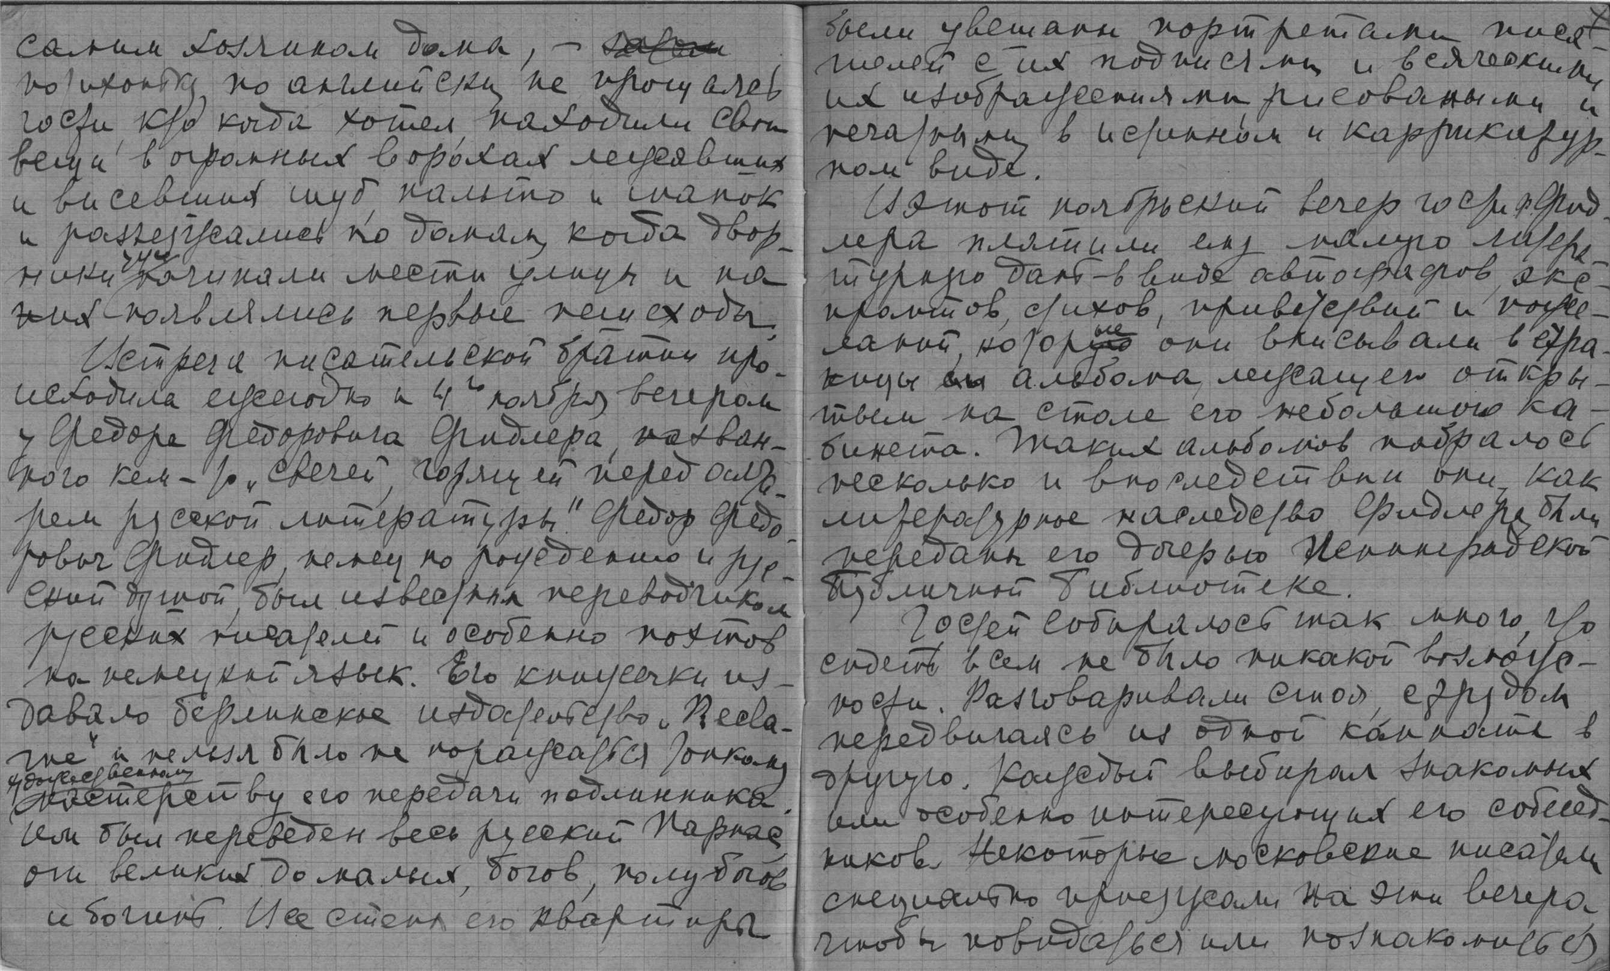 самим хозяином дома, –
потихоньку, по английски, не прощаясь
гости, кто когда хотел, находили свои
вещи в огромных ворохах лежавших
и висевших шуб, пальто и шапок
и разъезжались по домам, когда двор-
ники уже начинали мести улицы и на
них появлялись первые пешеходы.
Встреча писательской братии про-
исходила ежегодно и 4го ноября вечером
у Федора Федоровича Фидлера, назван-
ного кем-то „свечей, горящей перед алта-
рем русской литературы". Федор Федо-
рович Фидлер, немец по рождению и рус-
ский душой, был известным переводчиком
русских писателей и особенно поэтов
на немецкий язык. Его книжечки из-
давало берлинское издательство „Recla-
me" и нельзя было не поражаться тонкому
художественному
мастерству его передачи подлинника.
Им был переведен весь русский Парнас,
от великих до малых, богов, полубогов
и богинь. Все стены его квартиры
были увешаны портретами писа-
телей с их подписями и всяческими
их изображениями рисоваными и
печатными, в истинном и каррикатур-
ном виде.
В этот ноябрьский вечер гости Фид-
лера платили ему малую литера-
турную дань в виде автографов, экс-
промтов, стихов, приветствий и поже-
ланий, которые они вписывали в стра-
ницы альбома, лежащего откры-
тым на столе его небольшого ка-
бинета. Таких альбомов набралось
несколько и впоследствии они, как
литературное наследство Фидлера, были
переданы его дочерью Ленинградской
Публичной библиотеке.
Гостей собиралось так много, что
сидеть всем не было никакой возмож-
ности. Разговаривали стоя, с трудом
передвигаясь из одной комнаты в
другую. Каждый выбирал знакомых
или особенно интересующих его собесед-
ников. Некоторые московские писатели
специально приезжали на эти вечера,
чтобы повидаться или познакомиться